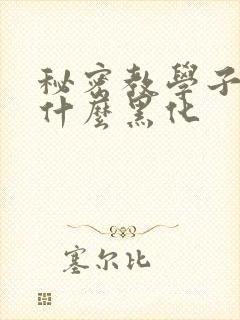 秘密教學子
什麼黑化
塞尔比